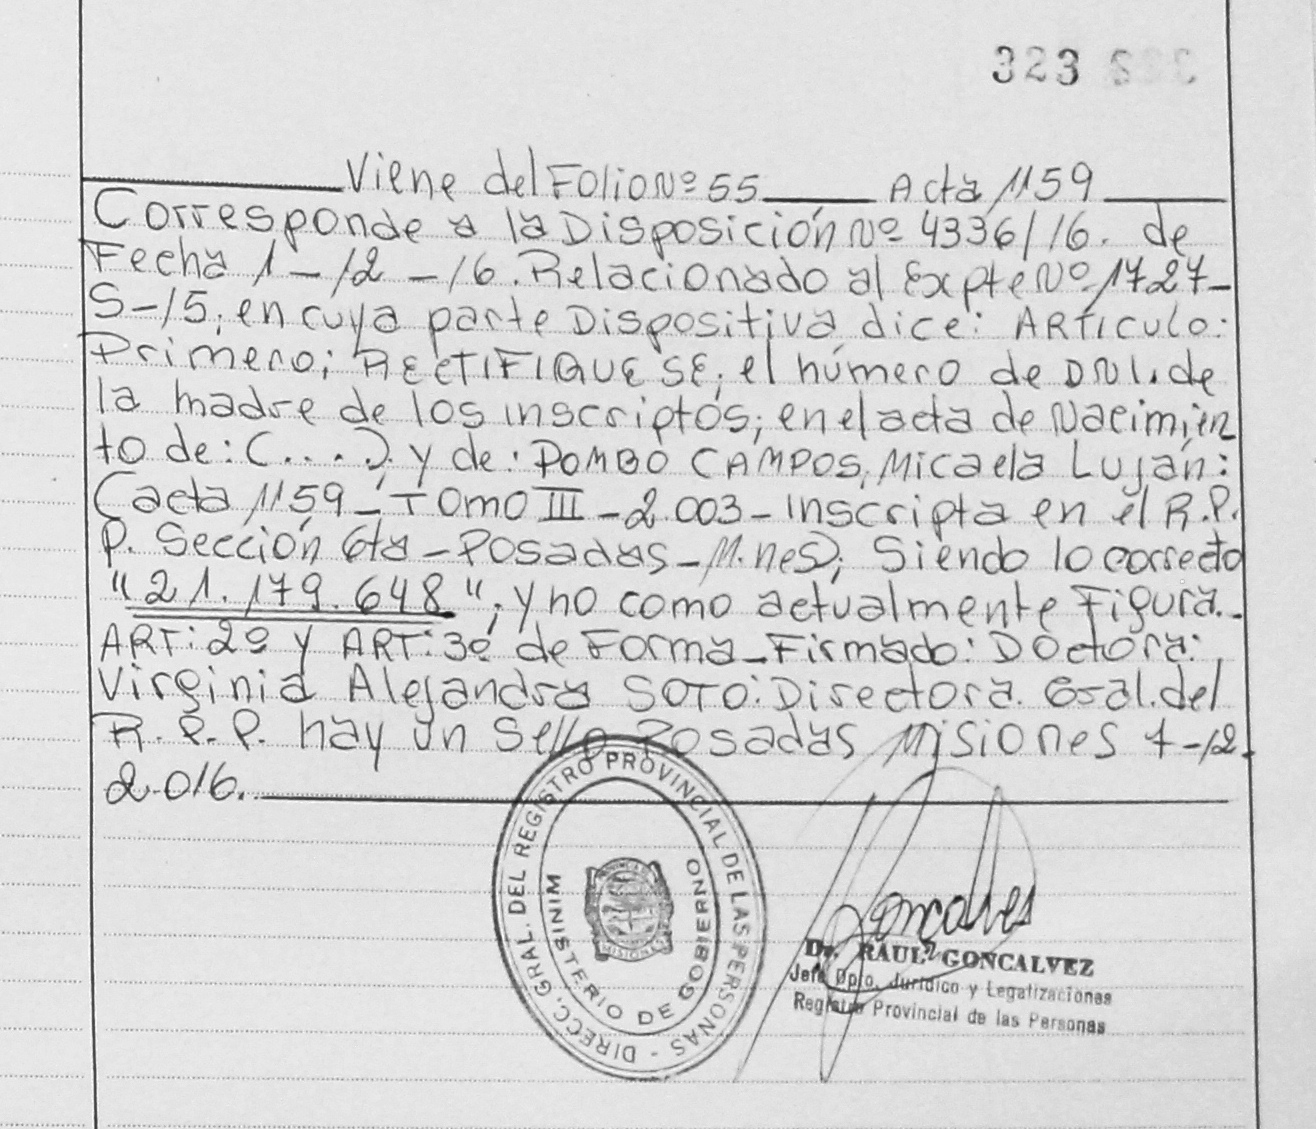 323 323
Viene del Folio Nº 55 Acta 1159
Corresponde a la Disposición Nº 4336/16. de
Fecha 1-12-16. Relacionado al Expte Nº 1727-
S-15; en cuya parte Dispositiva dice: ARTICULO:
Primero; RECTIFIQUESE; el número de DNI. de
la madre de los inscriptos; en el acta de Nacimien
to de: (....) y de: POMBO CAMPOS, Micaela Luján:
(acta 1159-TOMO III-2.003-Inscripta en el R.P.
P. Sección 6ta-Posadas-M.nes); Siendo lo correcto
"21.179.648"; y no como actualmente Figura.-
ART: 2º y ART: 3º de Forma-Firmado: Doctora:
Virginia Alejandra SOTO: Directora. Gral. del
R.P.P. hay un Sello Posadas Misiones 1-12-
2.016.
DIRECC. GRAL. DEL REGISTRO PROVINCIAL DE LAS PERSONAS -
MINISTERIO DE GOBIERNO
MISIONES
Goncalves
Dr. RAUL GONCALVEZ
Jefe Dpto. Jurídico y Legalizaciones
Registro Provincial de las Personas